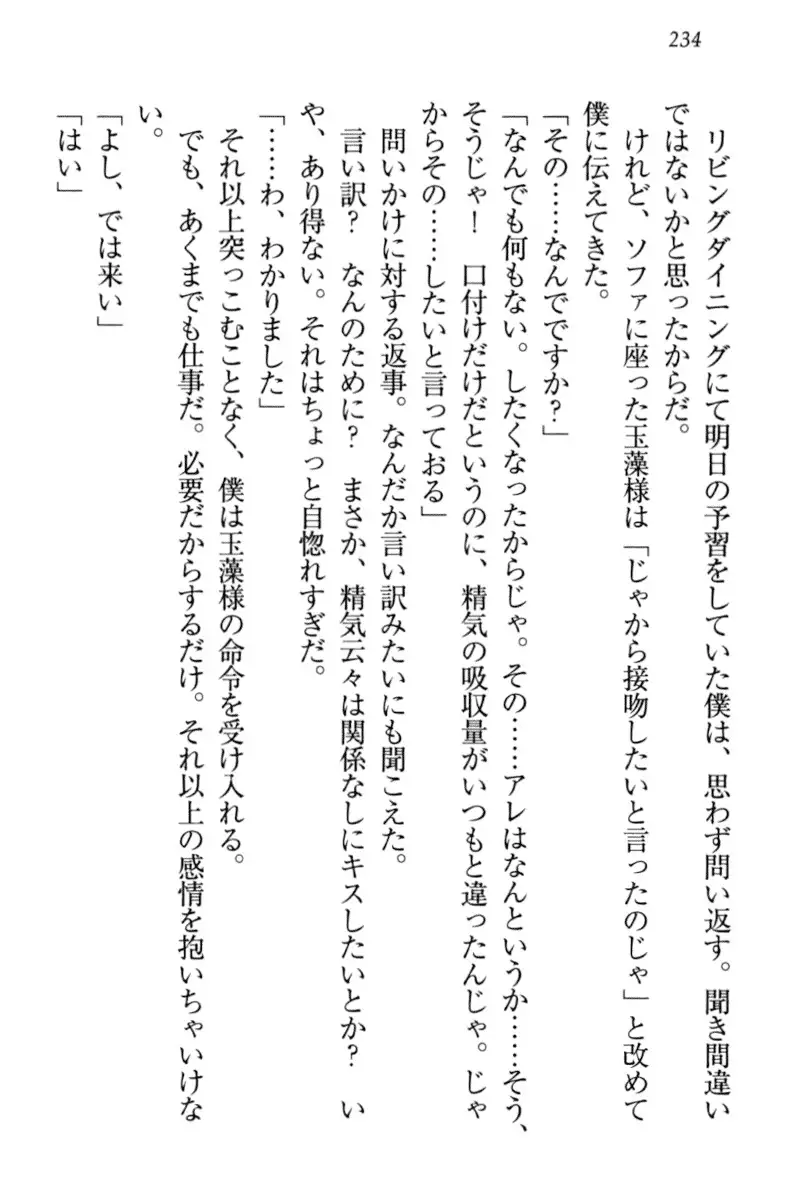 234
リビングダイニングにて明日の予習をしていた僕は、思わず問い返す。聞き間違い
ではないかと思ったからだ。
けれど、ソファに座った玉藻様は「じゃから接吻したいと言ったのじゃ」と改めて
僕に伝えてきた。
「その……なんでですか？」
「なんでも何もない。したくなったからじゃ。その……アレはなんというか……そう、
そうじゃ！　口付けだけだというのに、精気の吸収量がいつもと違ったんじゃ。じゃ
からその……したいと言っておる」
問いかけに対する返事。なんだか言い訳みたいにも聞こえた。
言い訳？　なんのために？　まさか、精気云々は関係なしにキスしたいとか？　い
や、あり得ない。それはちょっと自惚れすぎだ。
「……わ、わかりました」
それ以上突っこむことなく、僕は玉藻様の命令を受け入れる。
でも、あくまでも仕事だ。必要だからするだけ。それ以上の感情を抱いちゃいけな
い。
「よし、では来い」
「はい」